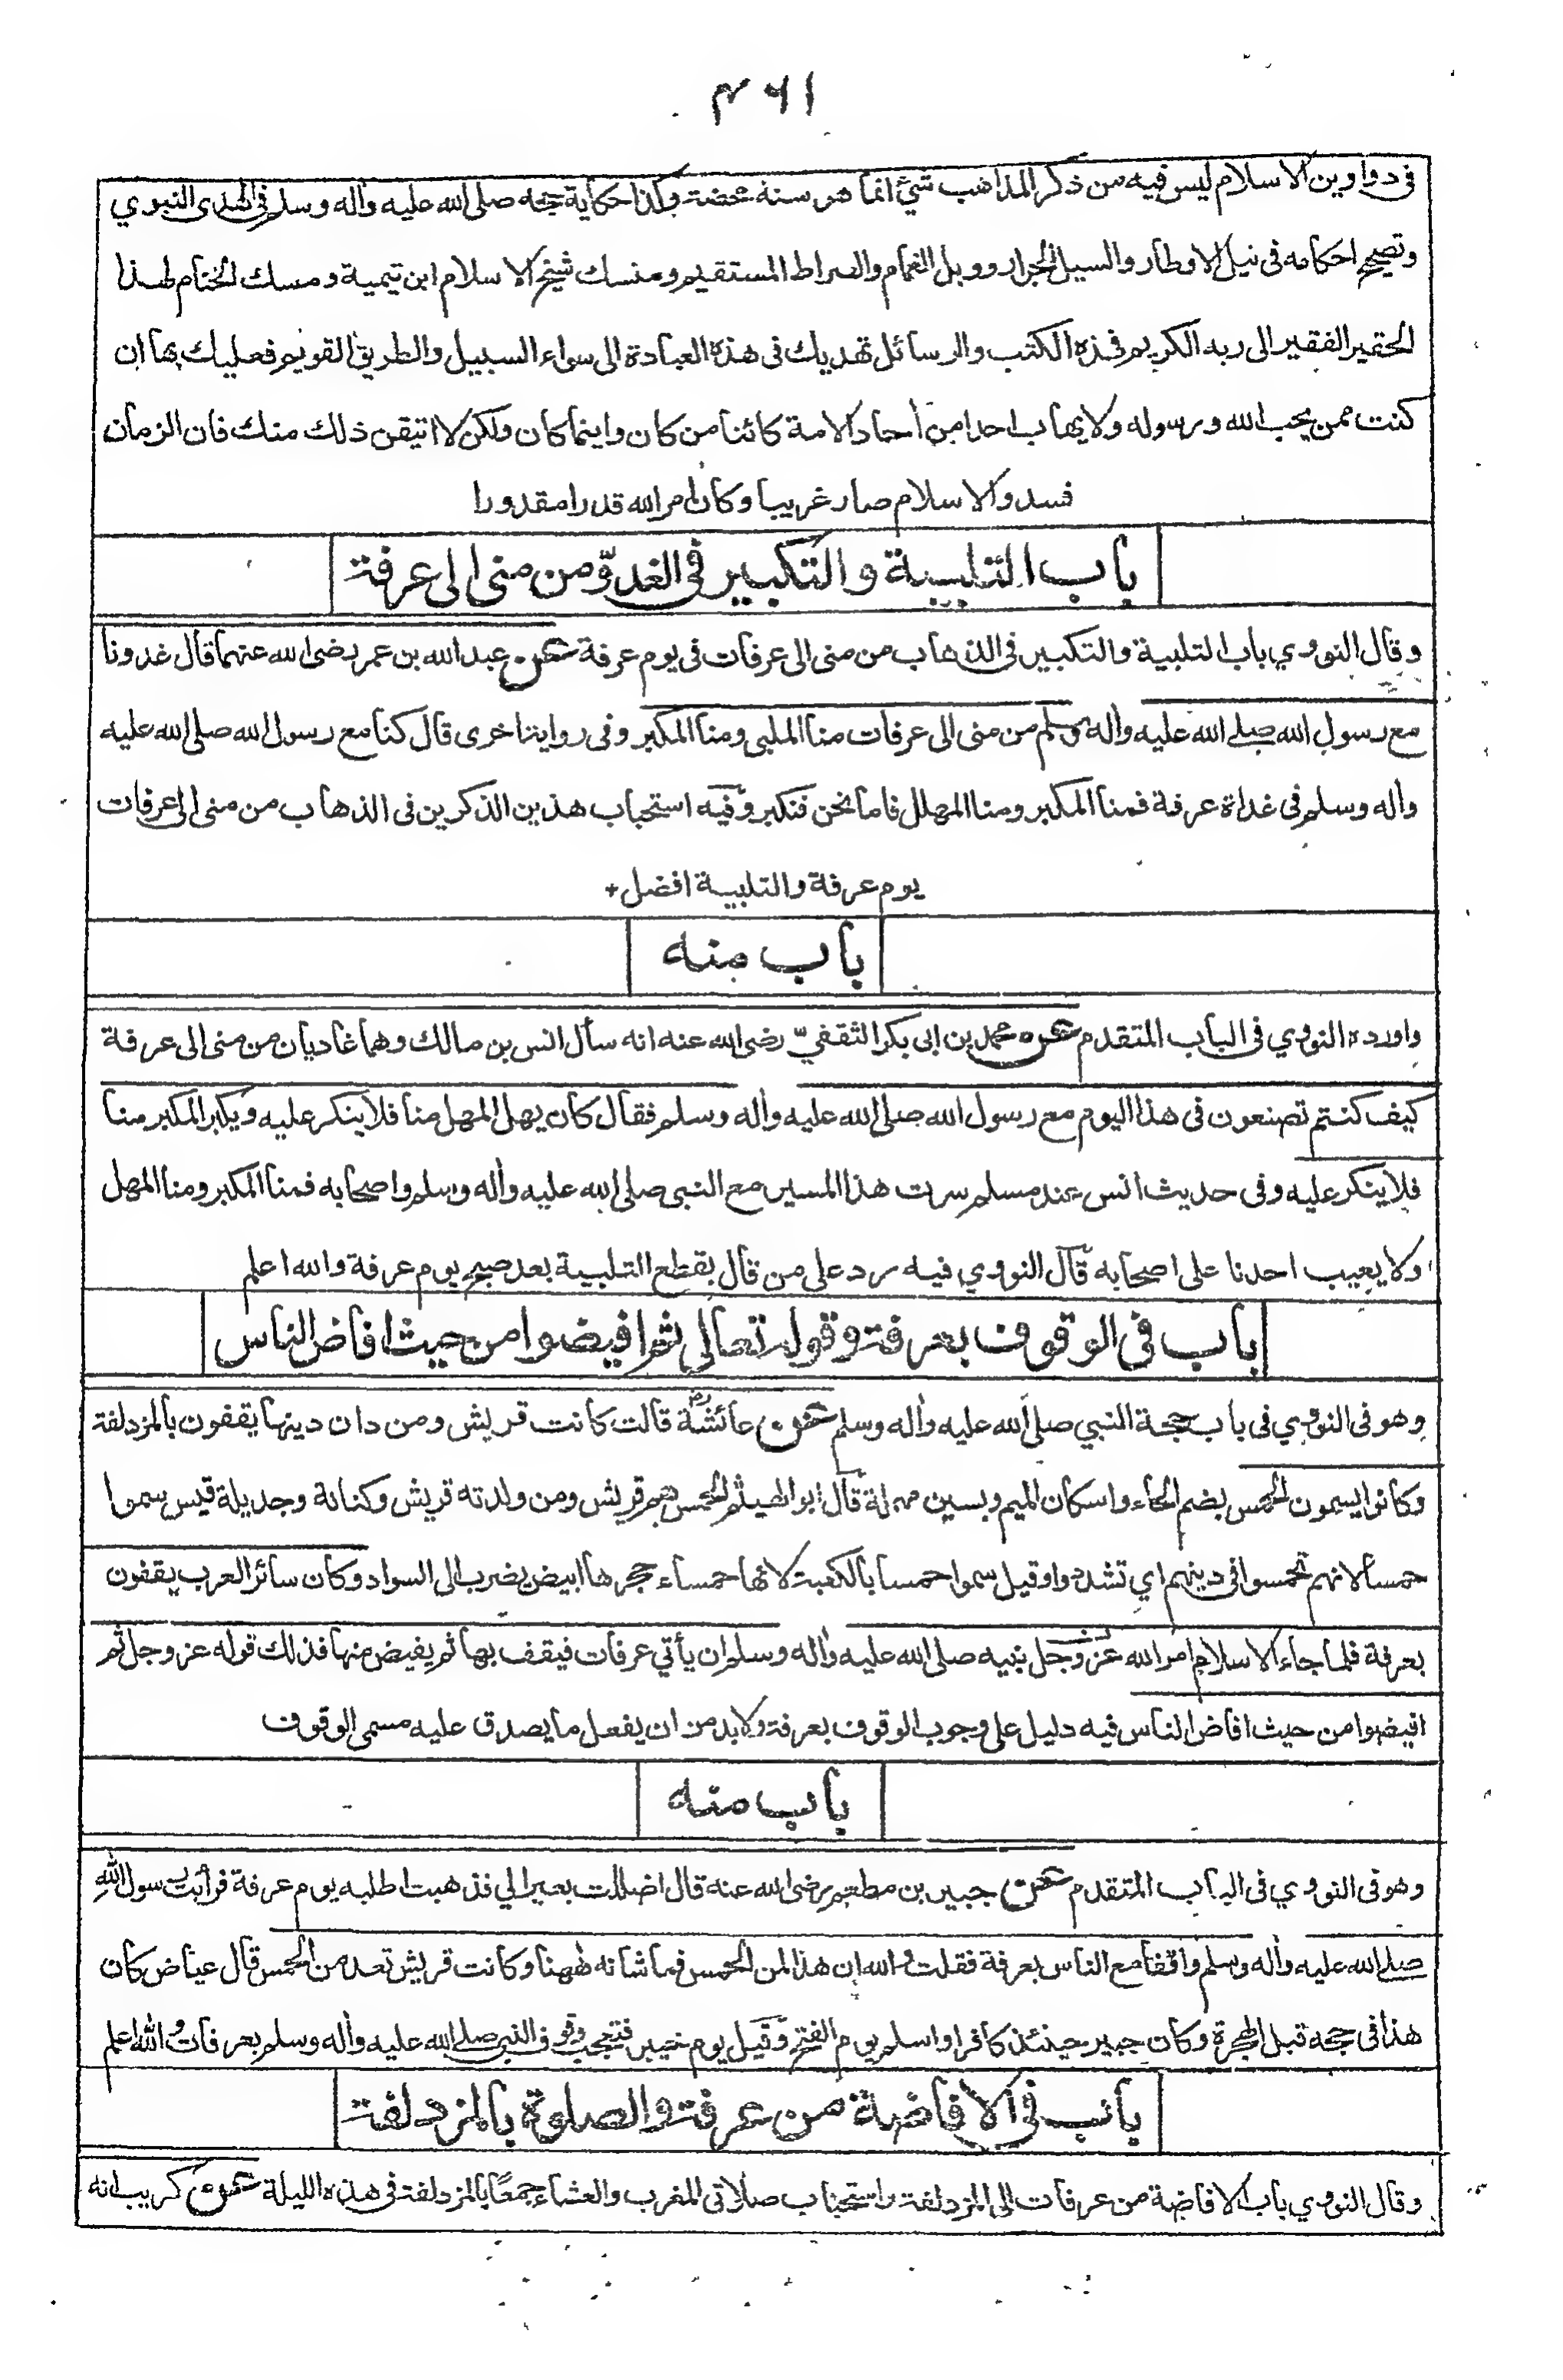 ٤٦١
فی دواوین الاسلام لیس فیه من ذکر المذاهب شیٔ انما هو سنة محضة وکذا حکایة حجه صلی الله علیه واٰله وسلم فی الهدی النبوي
وتصحیح احکامه فی نیل الاوطار والسیل الجرار ووبل الغمام والصراط المستقیم ومنسک شیخ الاسلام ابن تیمیة ومسک الختام لهذا
الحقیر الفقیر الی ربه الکریم فهذه الکتب والرسائل تهدیک فی هذه العبادة الی سواء السبیل والطریق القویم فعلیک بها ان
کنت ممن یحب الله ورسوله ولا یهاب احدا من اٰحاد الامة کائنا من کان واینما کان ولکن لا اتیقن ذلک منک فان الزمان
فسد والاسلام صار غریبا وکان امر الله قدرا مقدورا
باب التلبیة والتکبیر فی الغدوّ من منی الی عرفة
وقال النووي باب التلبیة والتکبیر فی الذهاب من منی الی عرفات فی یوم عرفة عن عبد الله بن عمر رضی الله عنهما قال غدونا
مع رسول الله صلی الله علیه واٰله وسلم من منی الی عرفات منا الملبی ومنا المکبر وفی روایة اخری قال کنا مع رسول الله صلی الله علیه
واٰله وسلم فی غداة عرفة فمنا المکبر ومنا المهلل فاما نحن فنکبر وفیه استحباب هذین الذکرین فی الذهاب من منی الی عرفات
یوم عرفة والتلبیة افضل +
باب منه
واورده النووي فی الباب المتقدم عن محمد بن ابی بکر الثقفيّ رضی الله عنه انه سأل انس بن مالک وهما غادیان من منی الی عرفة
کیف کنتم تصنعون فی هذا الیوم مع رسول الله صلی الله علیه واٰله وسلم فقال کان یهل المهل منا فلا ینکر علیه ویکبر المکبر منا
فلا ینکر علیه وفی حدیث انس عند مسلم سرت هذا المسیر مع النبی صلی الله علیه واٰله وسلم واصحابه فمنا المکبر ومنا المهل
ولا یعیب احدنا علی اصحابه قال النووي فیه رد علی من قال بقطع التلبیة بعد صبح یوم عرفة والله اعلم
باب فی الوقوف بعرفة وقوله تعالی ثم افیضوا من حیث افاض الناس
وهو فی النووي فی باب حجة النبي صلی الله علیه واٰله وسلم عن عائشة رض قالت کانت قریش ومن دان دینها یقفون بالمزدلفة
وکانوا یسمون الحمس بضم الحاء واسکان المیم وبسین مهملة قال ابو الهیثم الحمس هم قریش ومن ولدته قریش وکنانة وجدیلة قیس سموا
حمسا لانهم تحمسوا فی دینهم اي تشددوا وقیل سموا حمسا بالکعبة لانها حمساء حجرها ابیض یضرب الی السواد وکان سائر العرب یقفون
بعرفة فلما جاء الاسلام امر الله عز وجل نبیه صلی الله علیه واٰله وسلم ان یأتي عرفات فیقف بها ثم یفیض منها فذلک قوله عز وجل ثم
افیضوا من حیث افاض الناس فیه دلیل علی وجوب الوقوف بعرفة ولا بد من ان یفعل ما یصدق علیه مسمی الوقوف
باب منه
وهو فی النووي فی الباب المتقدم عن جبیر بن مطعم رضی الله عنه قال اضللت بعیرا لي فذهبت اطلبه یوم عرفة فرأیت رسول الله
صلی الله علیه واٰله وسلم واقفا مع الناس بعرفة فقلت والله ان هذا لمن الحمس فما شانه هٰهنا وکانت قریش تعد من الحمس قال عیاض کان
هذا فی حجه قبل الهجرة وکان جبیر حینئذ کافرا واسلم یوم الفتح وقیل یوم خیبر فتعجب وقوف النبی صلی الله علیه واٰله وسلم بعرفات والله اعلم
باب فی الافاضة من عرفة والصلوة بالمزدلفة
وقال النووي باب الافاضة من عرفات الی المزدلفة واستحباب صلاتی المغرب والعشاء جمعًا بالمزدلفة فی هذه اللیلة عن کریب انه